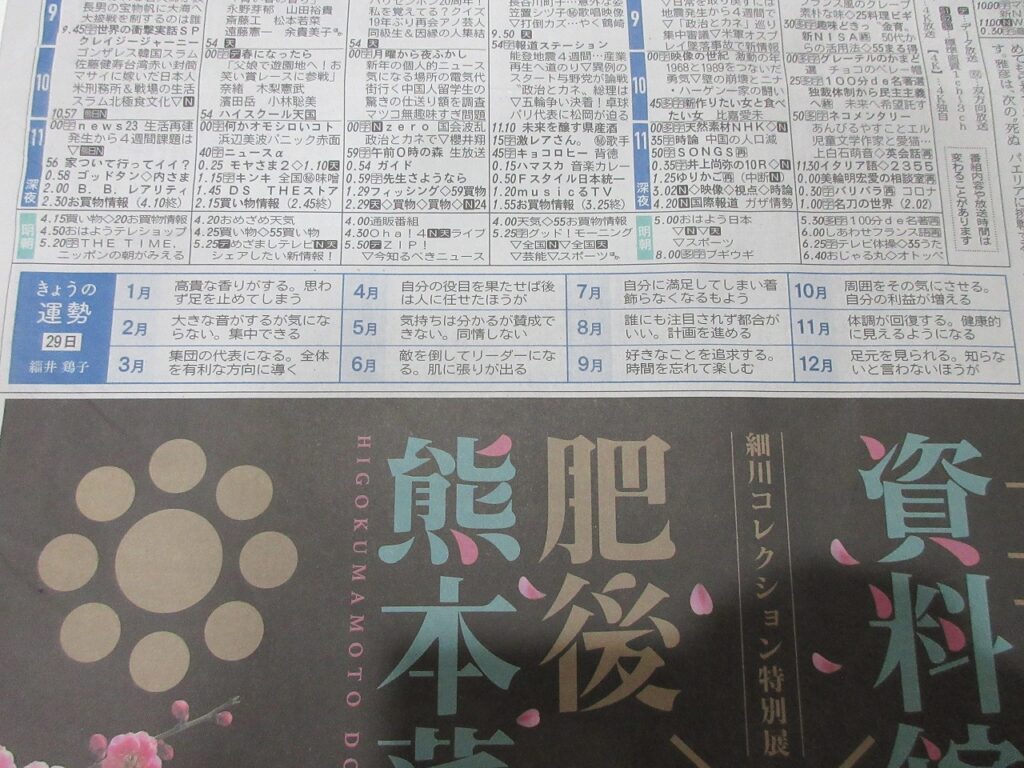 長男の宝物帆に大噂
大接戦を制するのは誰
9.45字世界の衝撃実話SP
クレイジージャーニー
コンゼレス韓国スラム
佐藤健寿台湾赤い封筒
マサイに嫁いだ日本人
米刑務所&戦場の生活
スラム北極食文化▽N
10.57
00字news23 生活再建
発生から4週間課題は
56 家ついて行ってイイ?
0.58 ゴッドタン◇内さま
2.00 B.B.レアリティ
2.30お買物情報(4.10終)
4.15買い物◇20お買物情報
4.50おはようテレショップ
5.20字THE TIME,
ニッポンの朝がみえる
永野芽郁 山田裕貴
斎藤工 松本若菜
遠藤憲一 余貴美子
54天
00字デ春になったら
「父娘で遊園地へ!お
笑い賞レースに参戦」
奈緒 木梨憲武
濱田岳 小林聡美
54 ハイスクール天国
00字何かオモシロいコト
浜辺美波パニック赤面
40字ニュースα
0.25 モヤさま2◇1.10天
1.15字キンキ 全国秘味噌
1.45 DS THEストア
2.15買い物情報(2.45終)
4.20おめざめ天気
4.25買い物◇55買い物
5.25デめざましテレビN天
シェアしたい新情報!
私を覚えてる?クイズ
19年ぶり再会アノ芸人
同級生&因縁の人集結
54天
00字月曜から夜ふかし
新年の個人的ニュース
気になる場所の電気代
街行く中国人留学生の
驚きの仕送り額を調査
マツコ無趣味すぎ問題
00字Nzero 国会波乱
政治とカネで▽櫻井翔
59字午前0時の森 生放送
0.54 ガイド
0.59字先生さようなら
1.29フィッシング◇59買物
2.29天◇買物◇買物◇N24
4.00通販番組
4.30Oha!4N天ライブ
5.50デZIP!
▽今知るべきニュース
笠置シヅ子秘歌唱映像
▽倒れたカズ…やく鶴崎
9.50天
54字報道ステーション
能登地震4週間…産業
再生へ道のり▽異例の
スタート与野党が論戦
“政治とカネ”総理は
▽五輪争い決着!卓球
パリ代表に松岡が迫る
11.10 未来を醸す県産酒
11.15字激レアさん。秘歌手
11.45字キョコロヒー 背徳
0.15ハマスカ 音楽カレー
0.50Fスタイル日本統一
1.20musicるTV
1.55お買物情報(3.25終)
4.00天気◇55お買物情報
5.25字グッド!モーニング
▽全国N▽全国天
▽芸能▽スポーツ
地震発生から4週間で
▽“政治とカネ”巡り
集中審議▽米軍オスプ
レイ墜落事故で新情報
00字映像の世紀 激動の年
1968と1989をつないだ
勇気▽壁の崩壊とナ
・ハーゲン一家の闘い
45多字新作りたい女と食べ
たい女 比嘉愛未
00多字天然素材NHK◇N
35字時論 中国の人口減
50字SONGS再
0.35字井上尚弥の10R◇N
1.25ゆりかご再(中断N)
3.02N◇映像◇視点◇時論
4.20N国際報道 ガザ情勢
5.00おはよう日本
▽N▽天
▽スポーツ
8.00字ブギウギ
フランス風のクレープ
素朴な味◇25料理ビギ
30多字趣味どきっ 金育。
新NISA再 初めて
の活用法◇55まる得
00多字グレーテルのかまど
選 チョコのベレー帽
25多字100分de名著再
独裁体制から民主主義
へ再 未来へ希望託す
50多字ネコメンタリー
あんびるやすことエル
児童文学作家と愛猫…
上白石萌音◇英会話再
11.30イタリア語◇2355
0.00美輪明宏愛の相談室再
0.30字バリバラ再 コロナ
1.00字名刀の世界(2.02)
5.30多字100分de名著再
6.00しあわせフランス語再
6.25字テレビ体操◇35うた
6.40おじゃる丸◇オトッペ
9
10
11
深夜
明朝
番組内容や放送時間は
変わることがあります
きょうの
運勢
29日
緇井 鶏子
1月 高貴な香りがする。思わ
ず足を止めてしまう
2月 大きな音がするが気にな
らない。集中できる
3月 集団の代表になる。全体
を有利な方向に導く
4月 自分の役目を果たせば後
は人に任せたほうが
5月 気持ちは分かるが賛成で
きない。同情しない
6月 敵を倒してリーダーにな
る。肌に張りが出る
7月 自分に満足してしまい着
飾らなくなるもよう
8月 誰にも注目されず都合が
いい。計画を進める
9月 好きなことを追求する。
時間を忘れて楽しむ
10月 周囲をその気にさせる。
自分の利益が増える
11月 体調が回復する。健康的
に見えるようになる
12月 足元を見られる。知らな
いと言わないほうが
資料館
細川コレクション特別展
肥後
熊本藩
HIGOKUMAMOTO DO